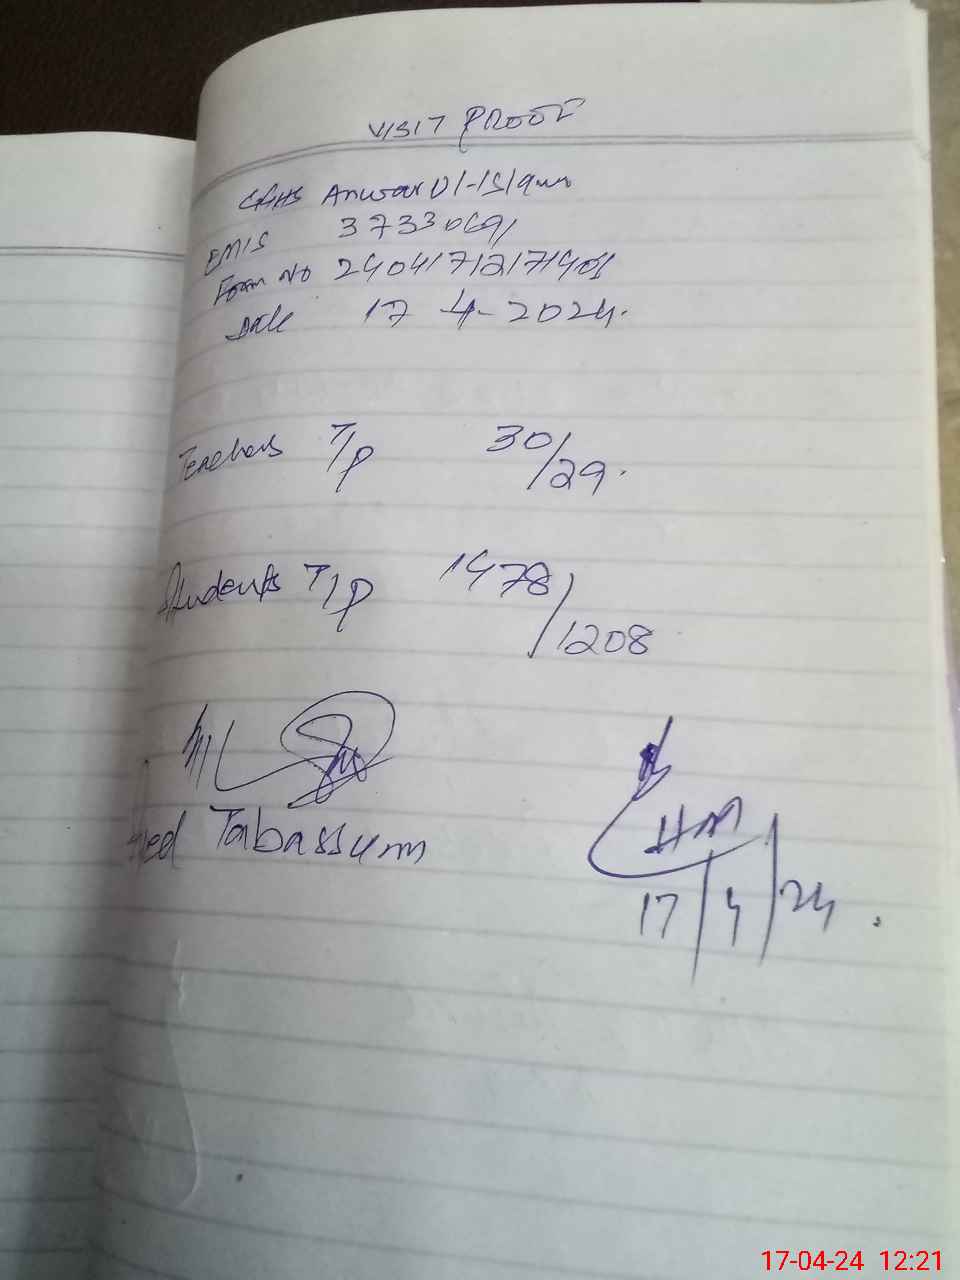 VISIT PROOF
GGHS Anwar Ul-Islam
EMIS 37330691
Form No 24041712171401
Date 17-4-2024.
Teachers T/P 30/29.
Students T/P 1478/1208
Tabassum
HM
17/4/24.
17-04-24 12:21